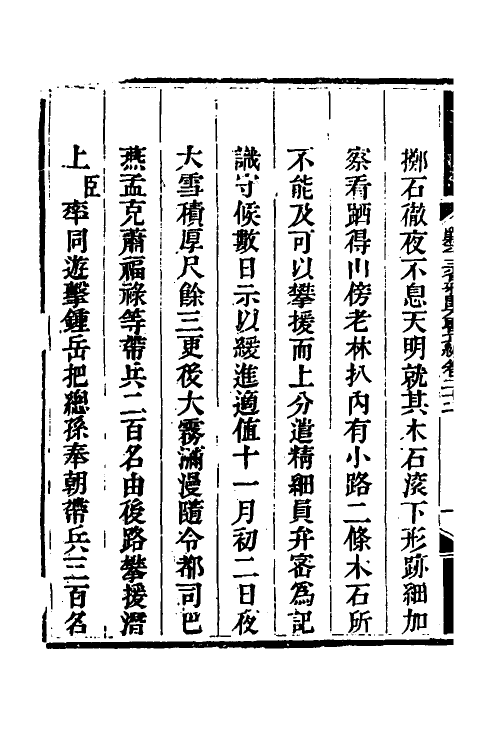 擲石徹夜不息天明就其木石滚下形跡細加
察看踊得山傍老林扒內有小路二條木石所
不能及可以攀援而上分遣精細員弁密爲記
識守候數日示以緩進適值十一月初二日夜
大雪積厚尺餘三更後大霧瀰漫隨令都司巴
燕孟克蕭福祿等帶兵二百名由後路攀援潛
上臣率同遊擊鍾岳把總孫奉朝帶兵三百名